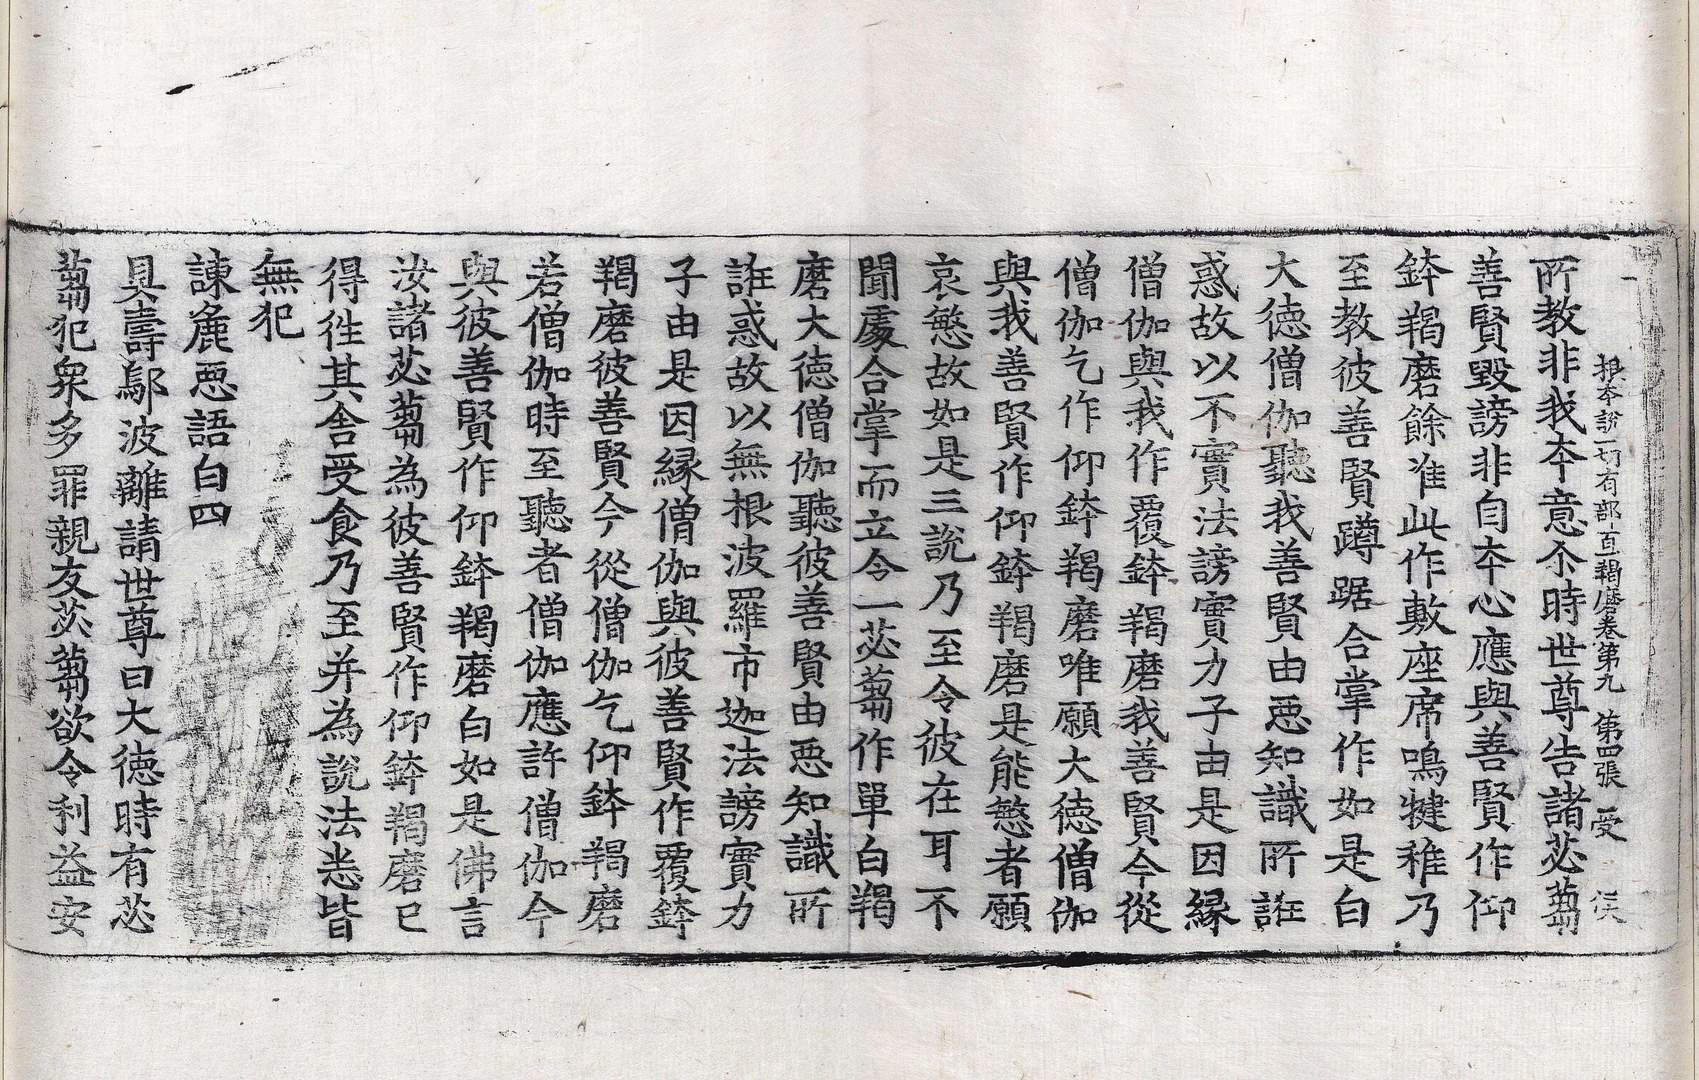 根本說一切有部百一羯磨卷第九 第四張 受
所教非我本意尒時世尊告諸苾蒭
善賢毀謗非自本心應與善賢作仰
鉢羯磨餘准此作敷座席鳴揵稚乃
至教彼善賢蹲踞合掌作如是白
大德僧伽聽我善賢由惡知識所誑
惑故以不實法謗實力子由是因緣
僧伽與我作覆鉢羯磨我善賢今從
僧伽乞作仰鉢羯磨唯願大德僧伽
與我善賢作仰鉢羯磨是能愍者願
哀愍故如是三說乃至令彼在耳不
聞處合掌而立令一苾蒭作單白羯
磨大德僧伽聽彼善賢由惡知識所
誑惑故以無根波羅市迦法謗實力
子由是因緣僧伽與彼善賢作覆鉢
羯磨彼善賢今從僧伽乞仰鉢羯磨
若僧伽時至聽者僧伽應許僧伽今
與彼善賢作仰鉢羯磨白如是佛言
汝諸苾蒭為彼善賢作仰鉢羯磨已
得往其舍受食乃至并為說法悉皆
無犯
諫麁惡語白四
具壽鄔波離請世尊曰大德時有苾
蒭犯眾多罪親友苾蒭欲令利益安